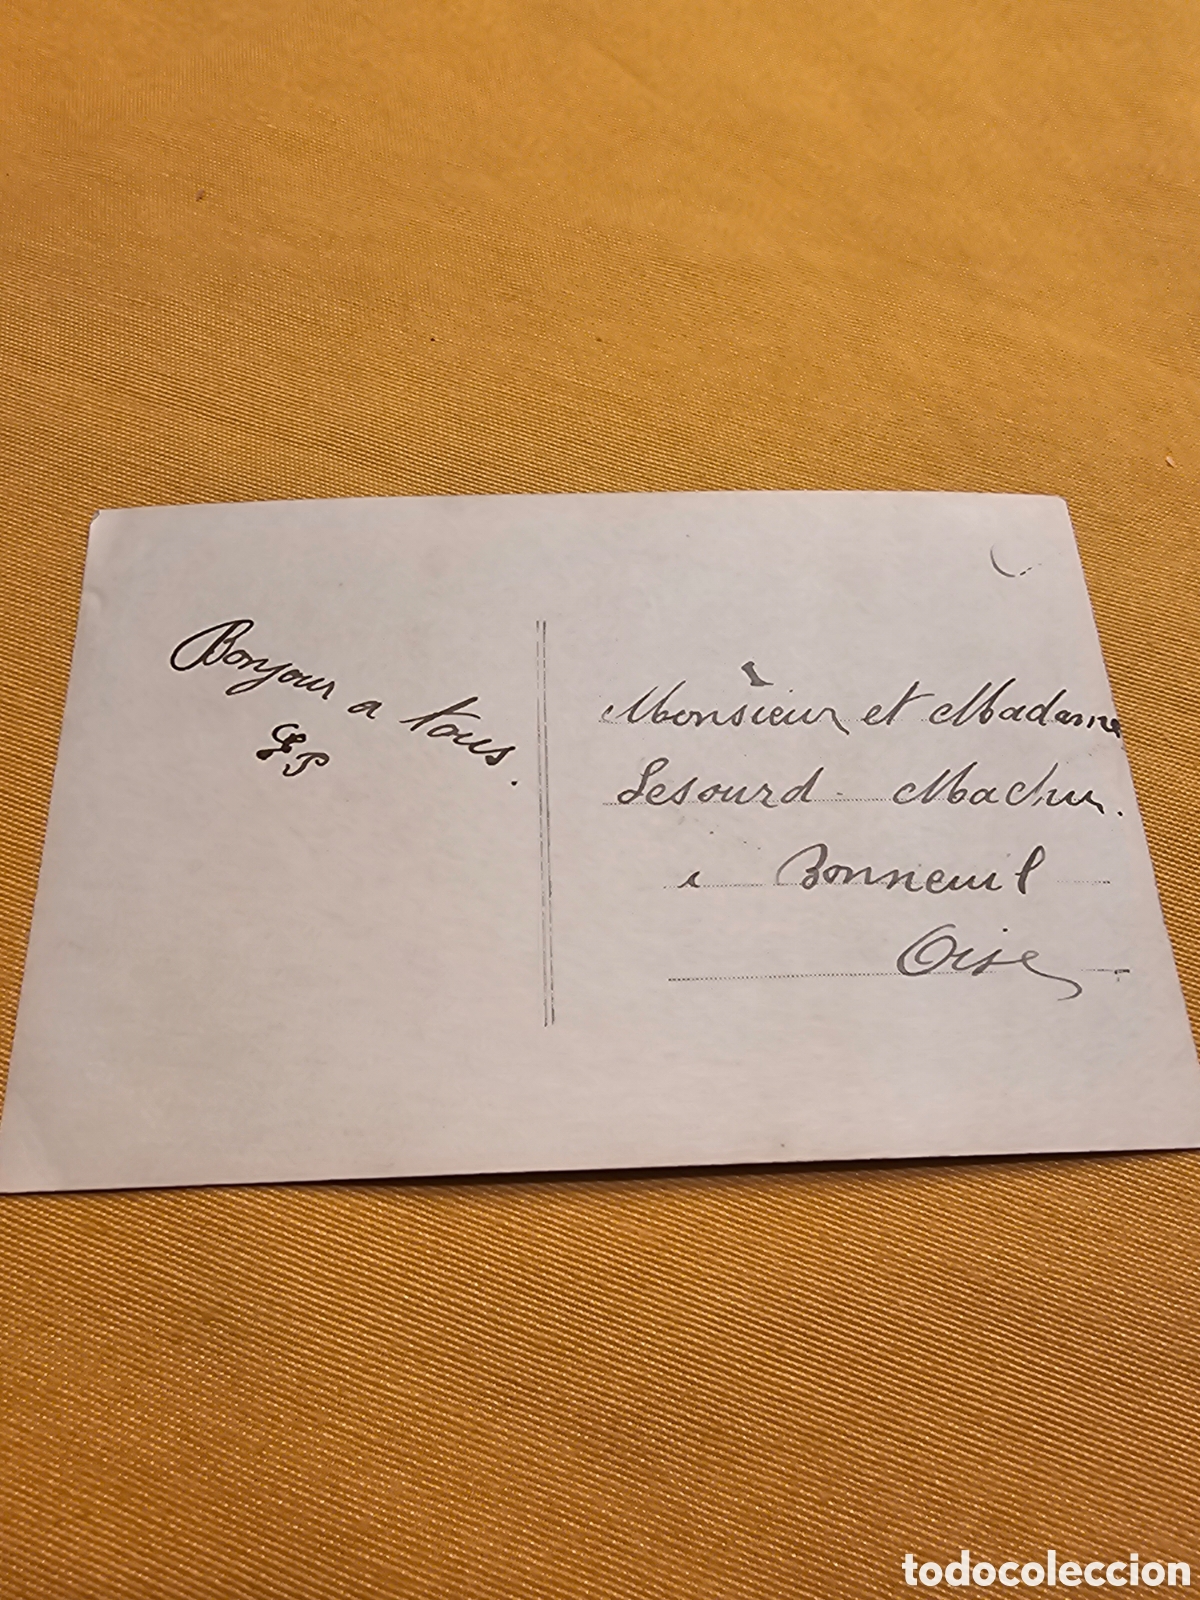 Bonjour a tous.
G P
Monsieur et Madame
Lesourd - Machu.
à Bonneuil
Oise
todocoleccion